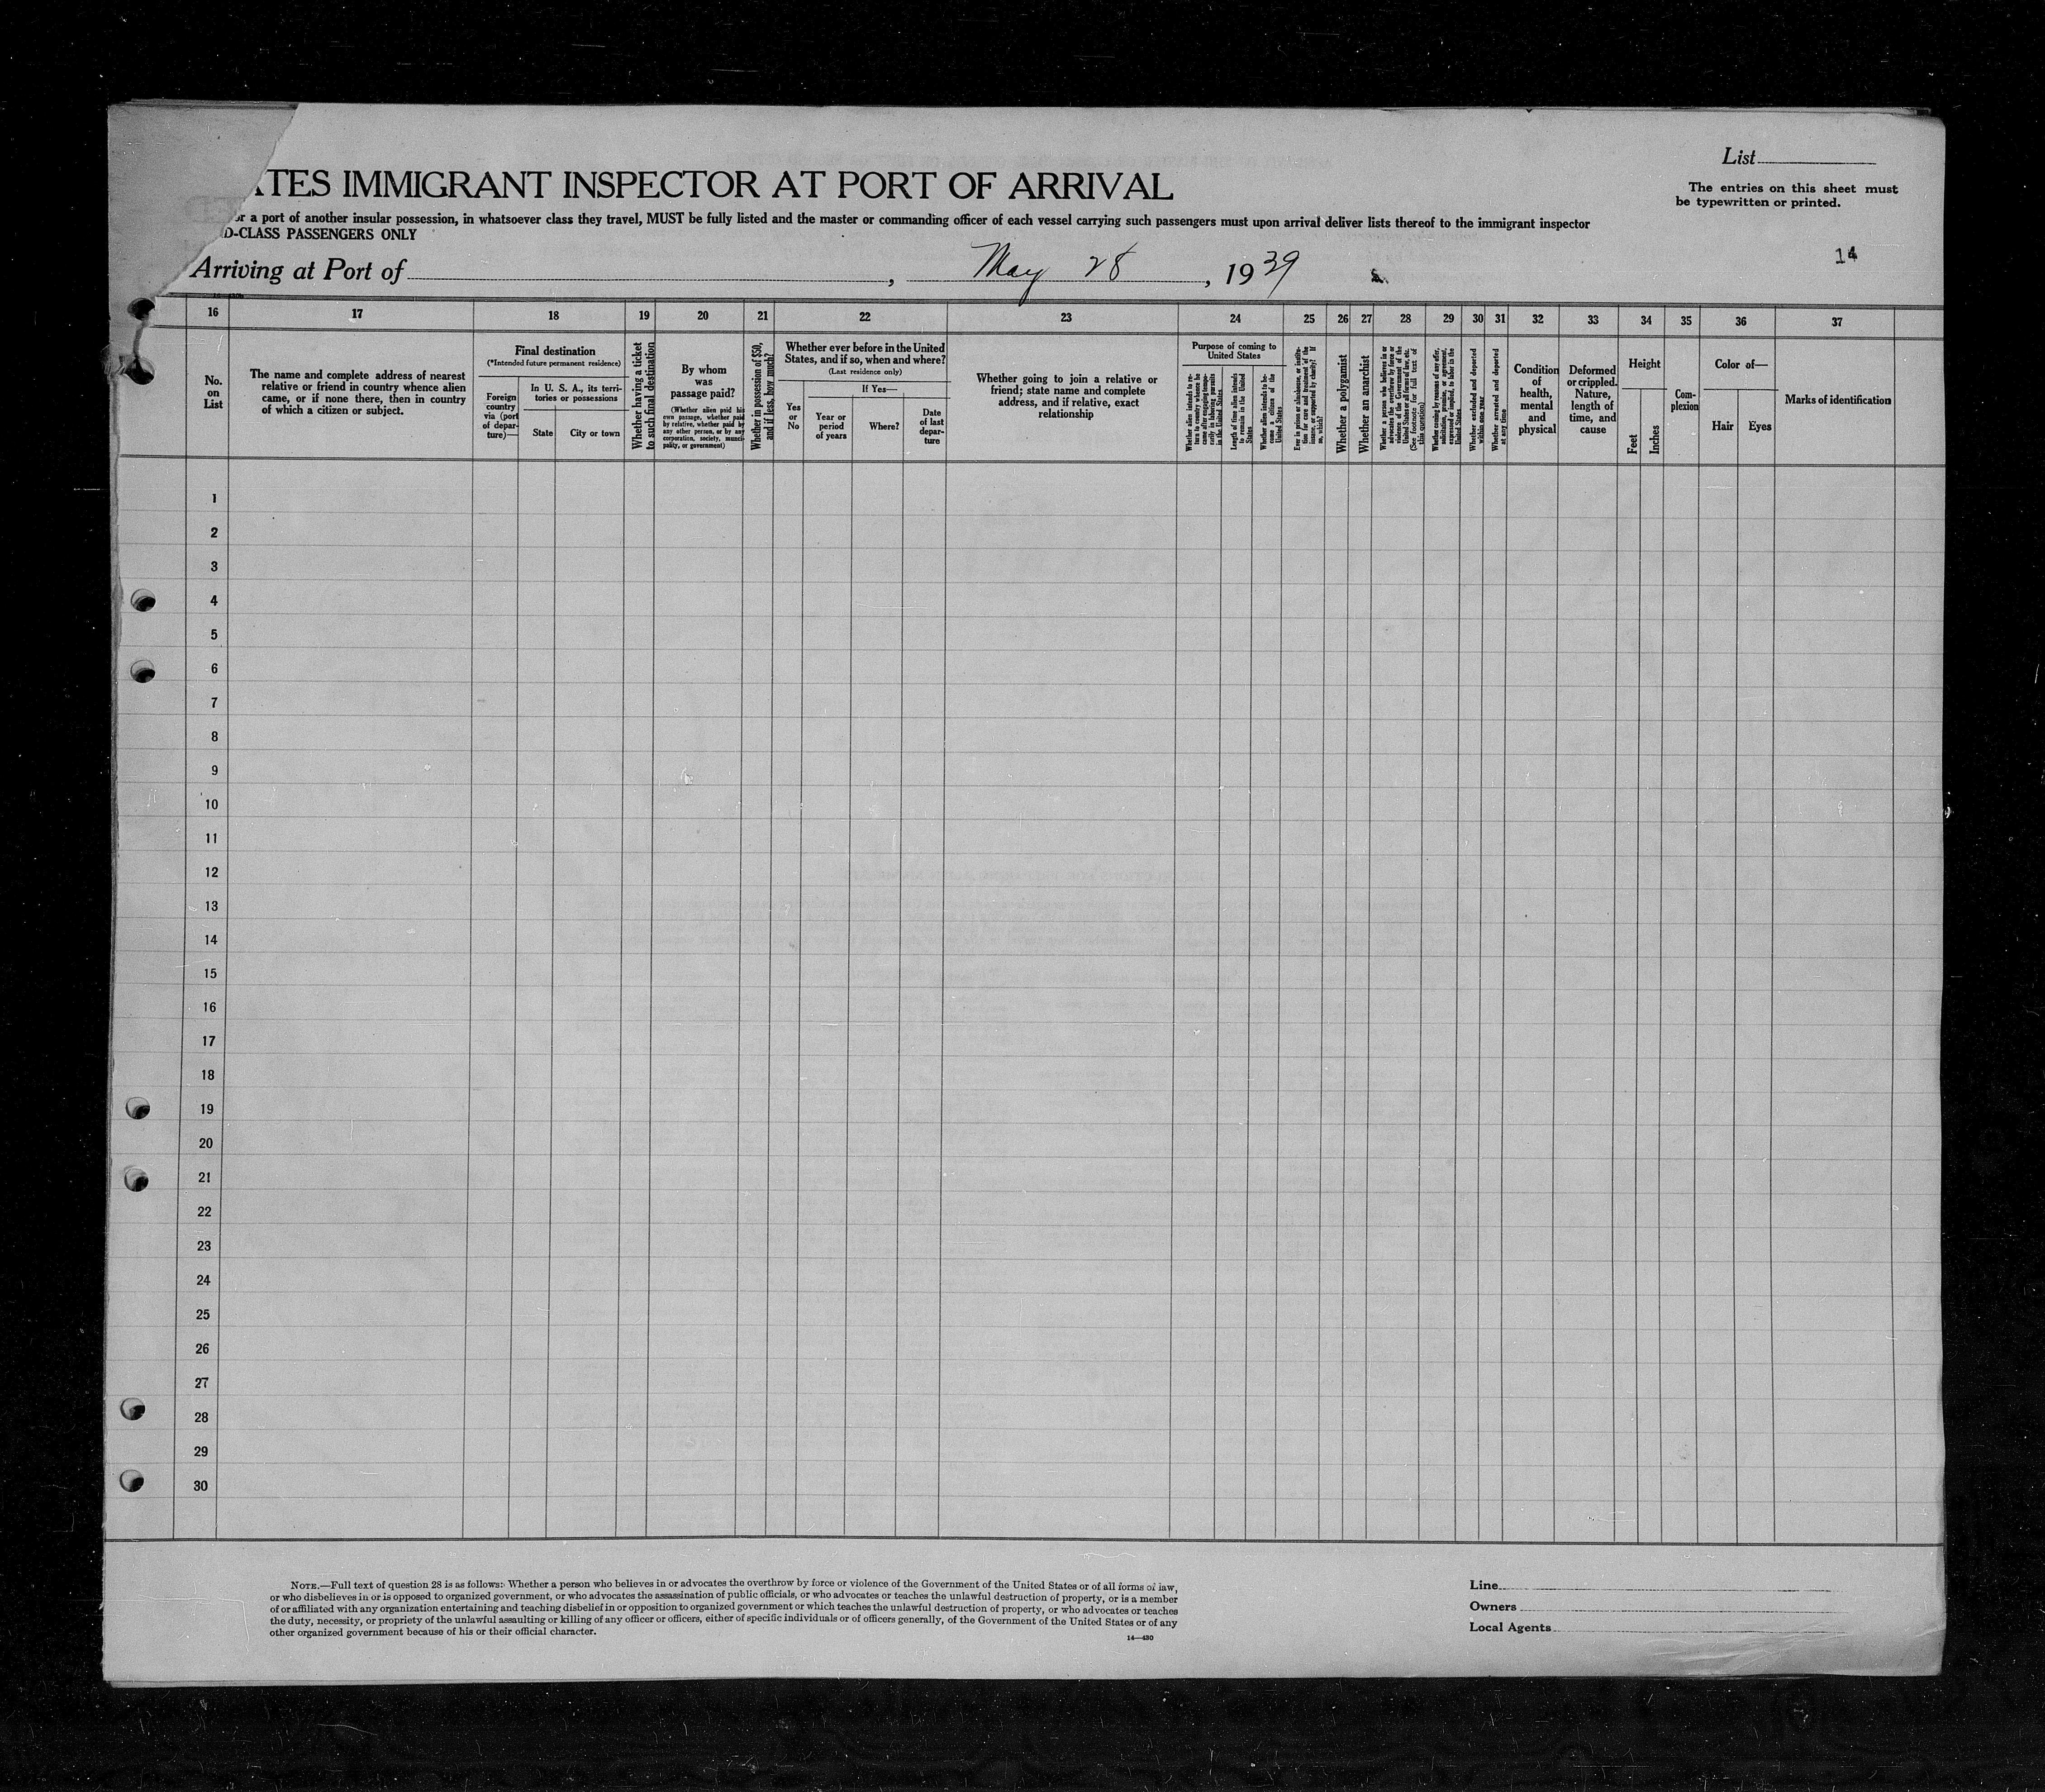 ATES IMMIGRANT INSPECTOR AT PORT OF ARRIVAL
List
The entries on this sheet must
be typewritten or printed.
or a port of another insular possession, in whatsoever class they travel, MUST be fully listed and the master or commanding officer of each vessel carrying such passengers must upon arrival deliver lists thereof to the immigrant inspector
D-CLASS PASSENGERS ONLY
14
Arriving at Port of , May 28 , 1939
16 17 18 19 20 21 22 23 24 25 26 27 28 29 30 31 32 33 34 35 36 37
No.
on
List
The name and complete address of nearest
relative or friend in country whence alien
came, or if none there, then in country
of which a citizen or subject.
Final destination
(*Intended future permanent residence)
Foreign
country
via (port
of depar-
ture)—
In U. S. A., its terri-
tories or possessions
State
City or town
Whether having a ticket
to such final destination
By whom
was
passage paid?
(Whether alien paid his
own passage, whether paid
by relative, whether paid by
any other person, or by any
corporation, society, munici-
pality, or government)
Whether in possession of $50,
and if less, how much?
Whether ever before in the United
States, and if so, when and where?
(Last residence only)
Yes
or
No
If Yes—
Year or
period
of years
Where?
Date
of last
depar-
ture
Whether going to join a relative or
friend; state name and complete
address, and if relative, exact
relationship
Purpose of coming to
United States
Whether alien intends to re-
turn to country whence he
came after engaging tempo-
rarily in laboring pursuits
in the United States
Length of time alien intends
to remain in the United
States
Whether alien intends to be-
come a citizen of the
United States
Ever in prison or almshouse, or institu-
tion for care and treatment of the
insane, or supported by charity? If
so, which?
Whether a polygamist
Whether an anarchist
Whether a person who believes in or
advocates the overthrow by force or
violence of the Government of the
United States or all forms of law, etc.
(See footnote for full text of
this question)
Whether coming by reasons of any offer,
solicitation, promise, or agreement,
expressed or implied, to labor in the
United States
Whether excluded and deported
within one year
Whether arrested and deported
at any time
Condition
of
health,
mental
and
physical
Deformed
or crippled.
Nature,
length of
time, and
cause
Height
Feet
Inches
Com-
plexion
Color of—
Hair
Eyes
Marks of identification
1
2
3
4
5
6
7
8
9
10
11
12
13
14
15
16
17
18
19
20
21
22
23
24
25
26
27
28
29
30
NOTE.—Full text of question 28 is as follows: Whether a person who believes in or advocates the overthrow by force or violence of the Government of the United States or of all forms of law,
or who disbelieves in or is opposed to organized government, or who advocates the assassination of public officials, or who advocates or teaches the unlawful destruction of property, or is a member
of or affiliated with any organization entertaining and teaching disbelief in or opposition to organized government or which teaches the unlawful destruction of property, or who advocates or teaches
the duty, necessity, or propriety of the unlawful assaulting or killing of any officer or officers, either of specific individuals or of officers generally, of the Government of the United States or of any
other organized government because of his or their official character.
14—430
Line
Owners
Local Agents